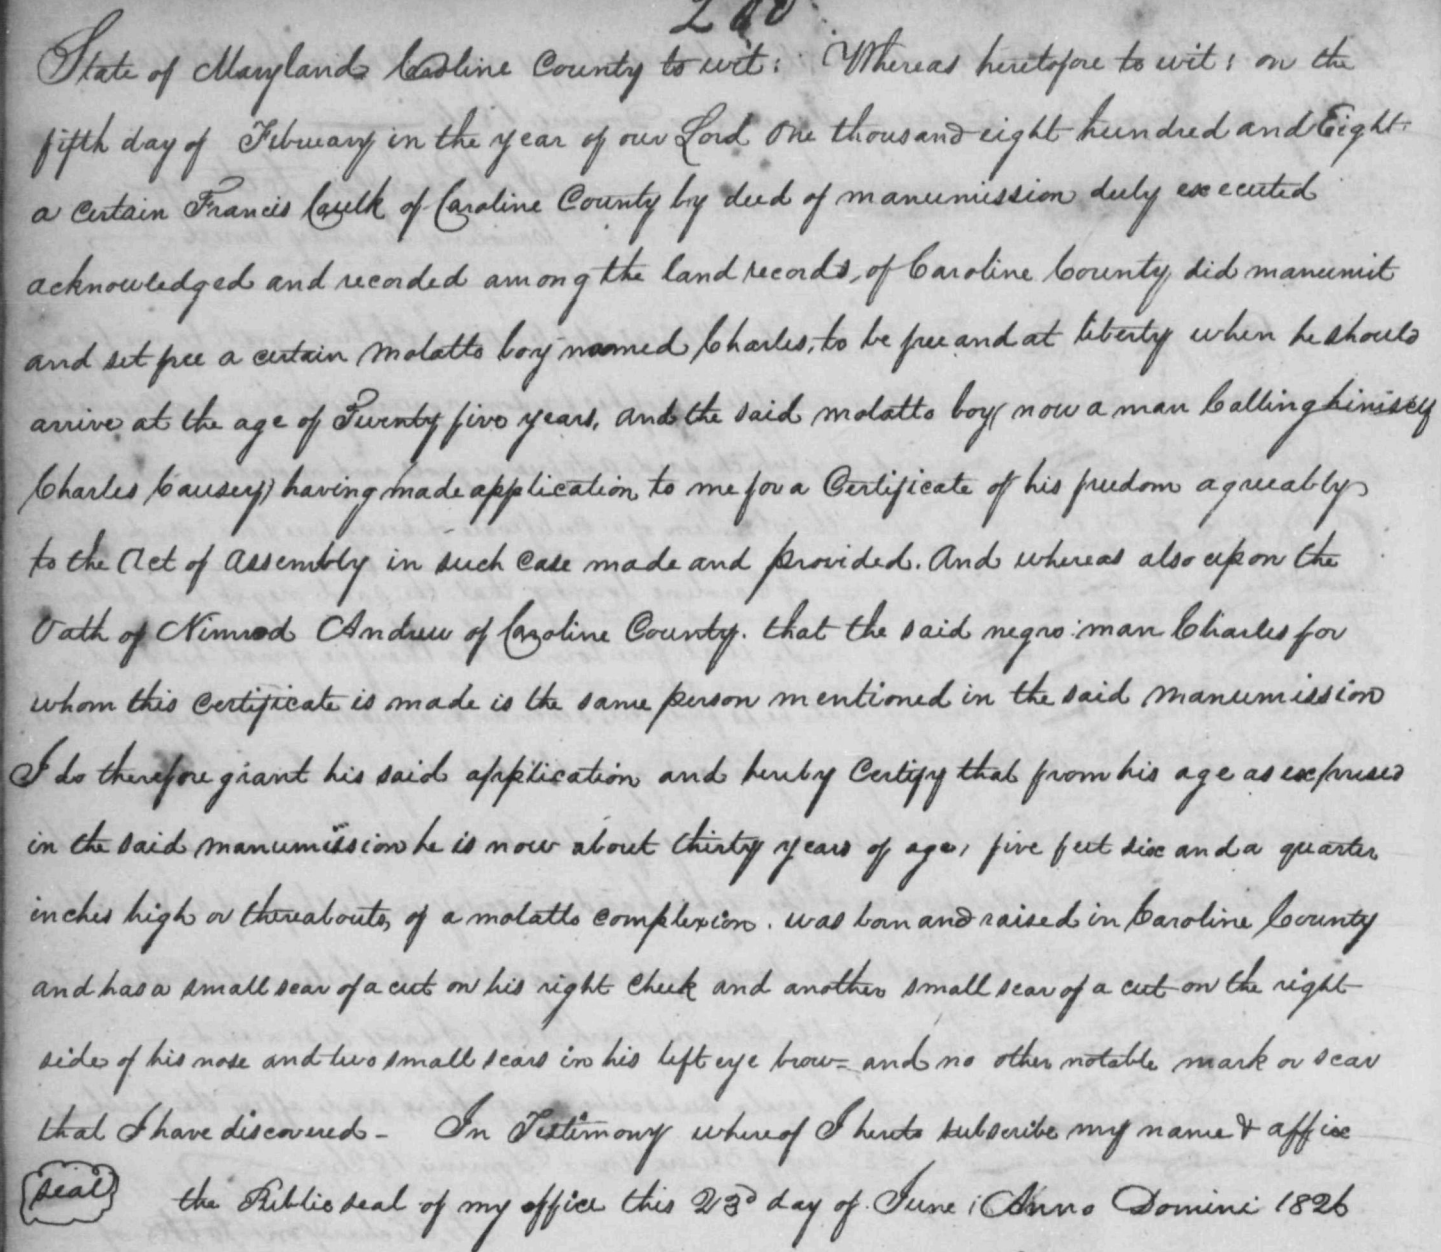 State of Maryland Caroline County to wit: Whereas heretofore to wit: on the
fifth day of February in the year of our Lord One thousand eight hundred and Eight
a certain Francis Caulk of Caroline County by deed of manumission duly executed
acknowledged and recorded among the land records, of Caroline County did manumit
and set free a certain Molatto boy naomed Charles, to be free and at liberty when he should
arrive at the age of Twenty five years, and the said molatto boy (now a man Calling himself
Charles Causey) having made application to me for a Certificate of his freedom agreeably
to the Act of Assembly in such case made and provided. And whereas also upon the
Oath of Nimrod Andrew of Caroline County. that the said negro man Charles for
whom this certificate is made is the same person mentioned in the said Manumission
I do therefore grant his said application and hereby Certify that from his age as expressed
in the said manumission he is now about thirty years of age, five feet six and a quarter
inches high or thereabouts, of a molatto complexion. was born and raised in Caroline County
and has a small scar of a cut on his right cheek and another small scar of a cut on the right
side of his nose and two small scars in his left eye brow = and no other notable mark or scar
that I have discovered - In Testimony whereof I hereto subscribe my name & affix
seal the Public seal of my office this 23d day of June Anno Domini 1826